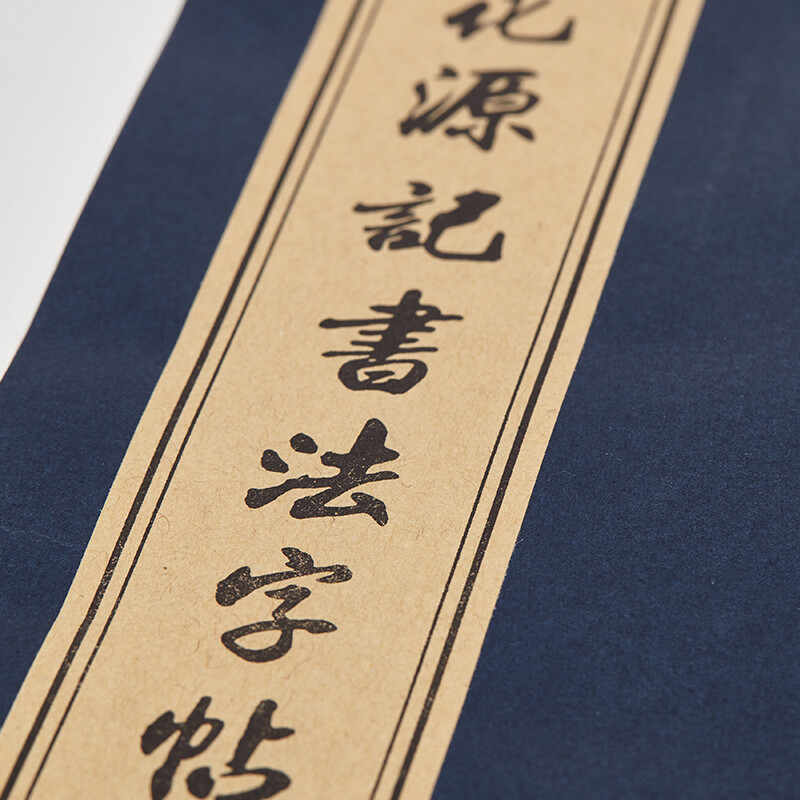 花源記書法字帖